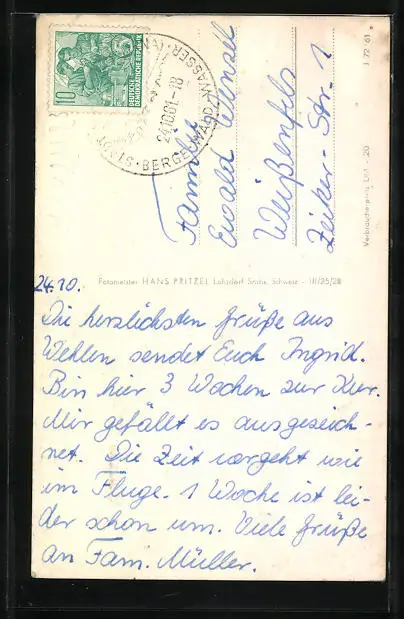 10
DEUTSCHE
DEMOKRATISCHE REPUBLIK
STADT · BERGE · WALD · WASSER ·
24.10.61.-18
Familie
Ewald Wenzel
Weißenfels
Zeitzer-Str. 1
I 72 61
Verbraucherpreis DM -.20
Fotomeister HANS PRITZEL Lohsdorf Sächs. Schweiz - III/25/28
24.10.
Die herzlichsten Grüße aus
Wehlen sendet Euch Ingrid.
Bin hier 3 Wochen zur Kur.
Mir gefällt es ausgezeich-
net. Die Zeit vergeht wie
im Fluge. 1 Woche ist lei-
der schon um. Viele Grüße
an Fam. Müller.